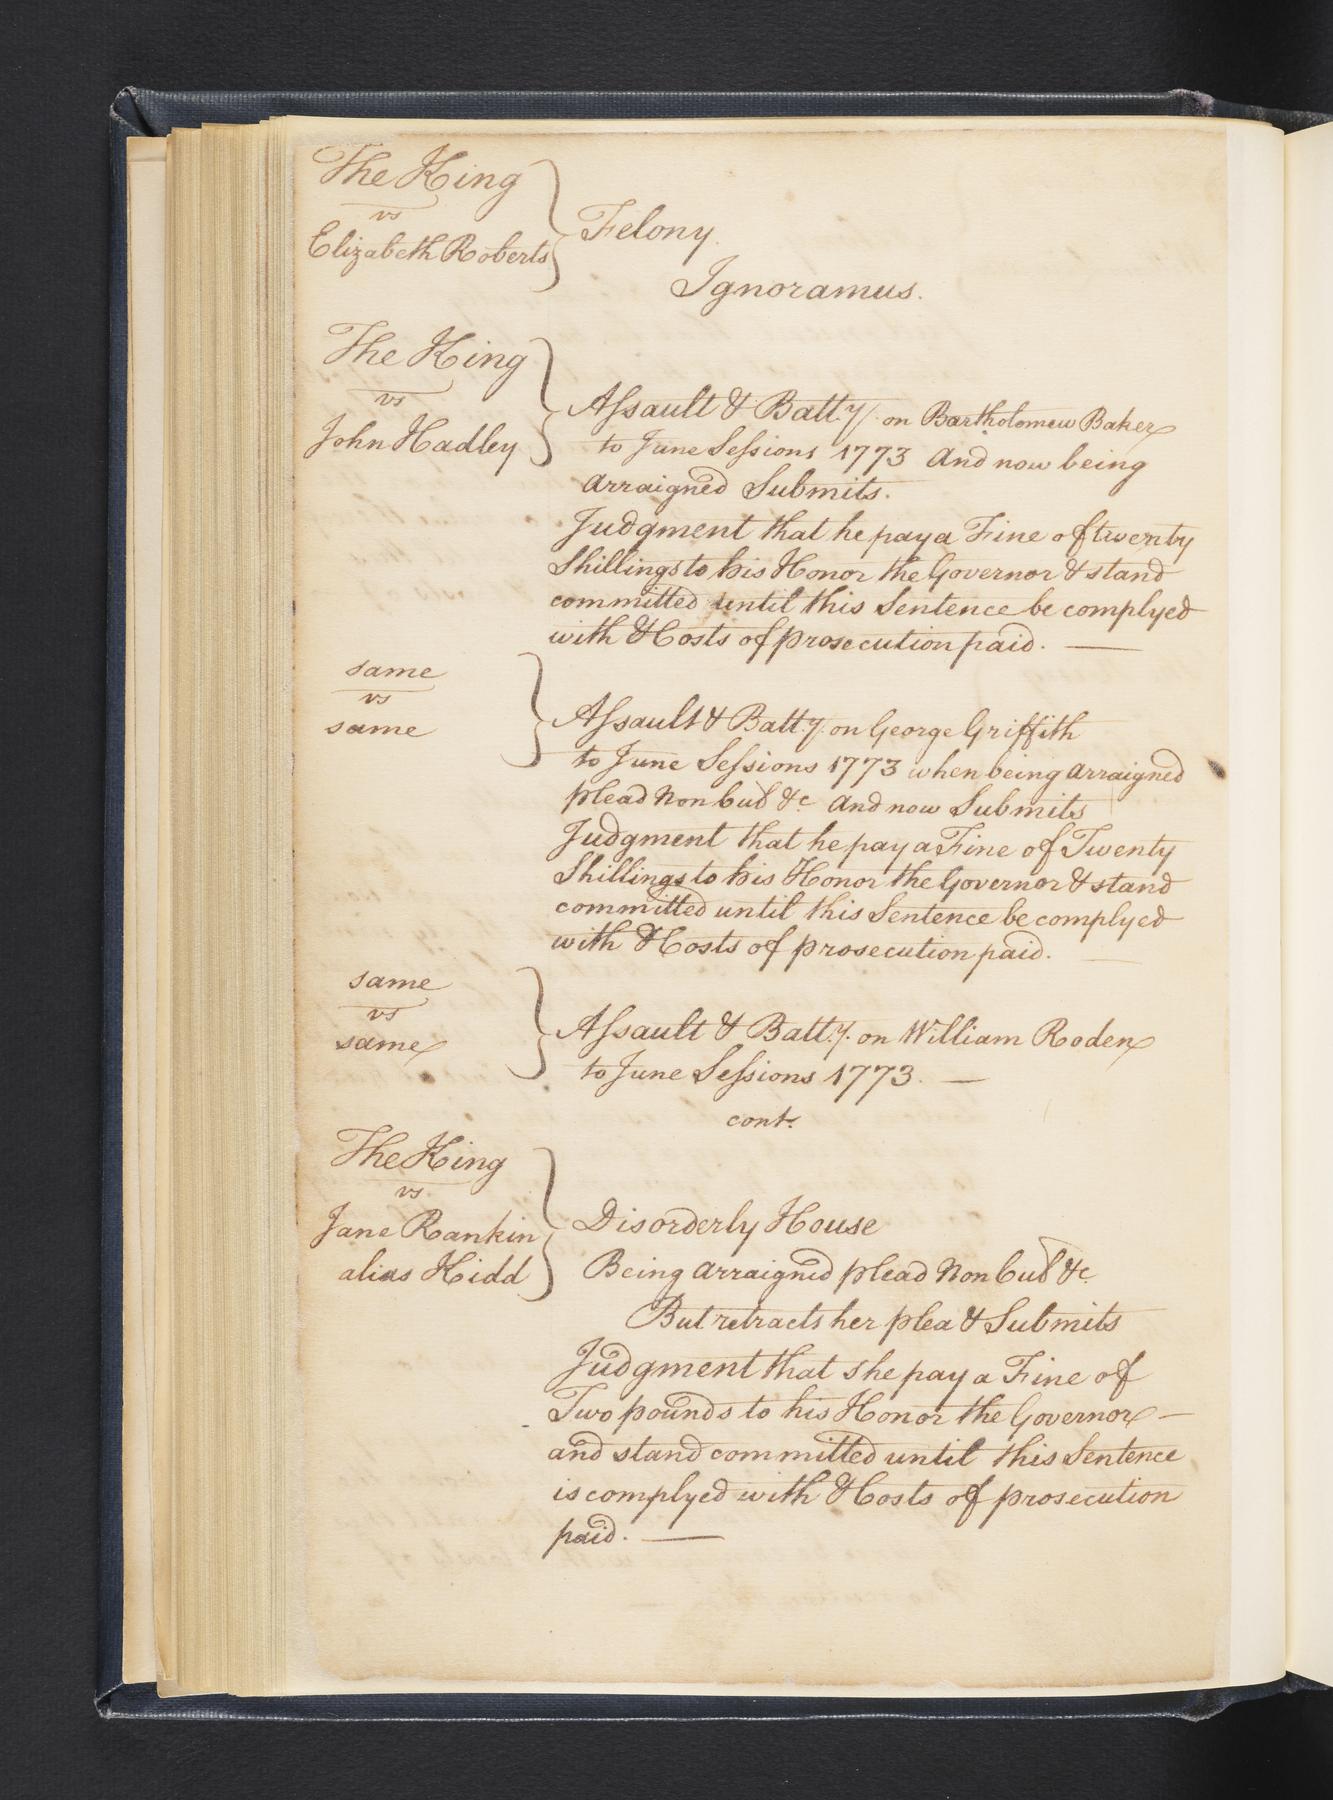 The King
vs
Elizabeth Roberts
Felony.
Ignoramus.
The King
vs
John Hadley
Aſsault & Batt.y. on Bartholomew Baker
to June Seſsions 1773 And now being
arraigned Submits.
Judgment that he pay a Fine of twenty
Shillings to his Honor the Governor & stand
committed until this Sentence be complyed
with & Costs of prosecution paid. —
same
vs
same
Aſsault & Batt.y. on George Griffith
to June Seſsions 1773 when being arraigned
plead Non Cul &c And now Submits
Judgment that he pay a Fine of Twenty
Shillings to his Honor the Governor & stand
committed until this Sentence be complyed
with & Costs of prosecution paid. —
same
vs
same
Aſsault & Batt.y. on William Roden
to June Seſsions 1773. —
cont.
The King
vs
Jane Rankin
alias Kidd
Disorderly House
Being arraigned plead Non Cul &c.
But retracts her plea & Submits
Judgment that she pay a Fine of
Two pounds to his Honor the Governor —
and stand committed until this Sentence
is complyed with & Costs of prosecution
paid. —